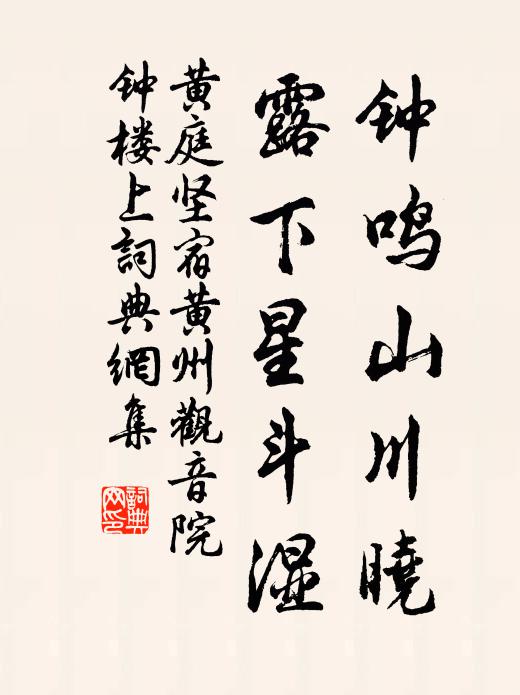 钟鸣山川曉
露下星斗湿
黄庭坚宿黄州觀音院
钟楼上詞典網集
詞典网印